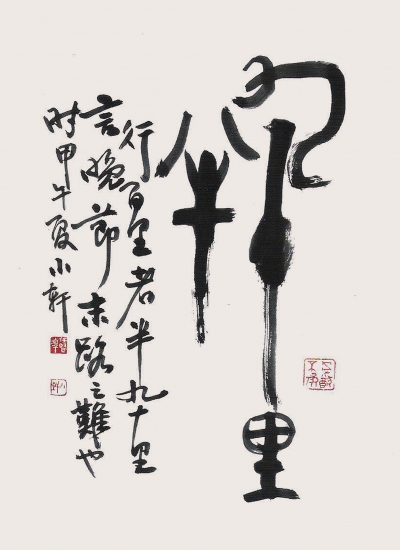 九十里
半
行百里者半九十里
言晚節末路之難也
时甲午夏小軒